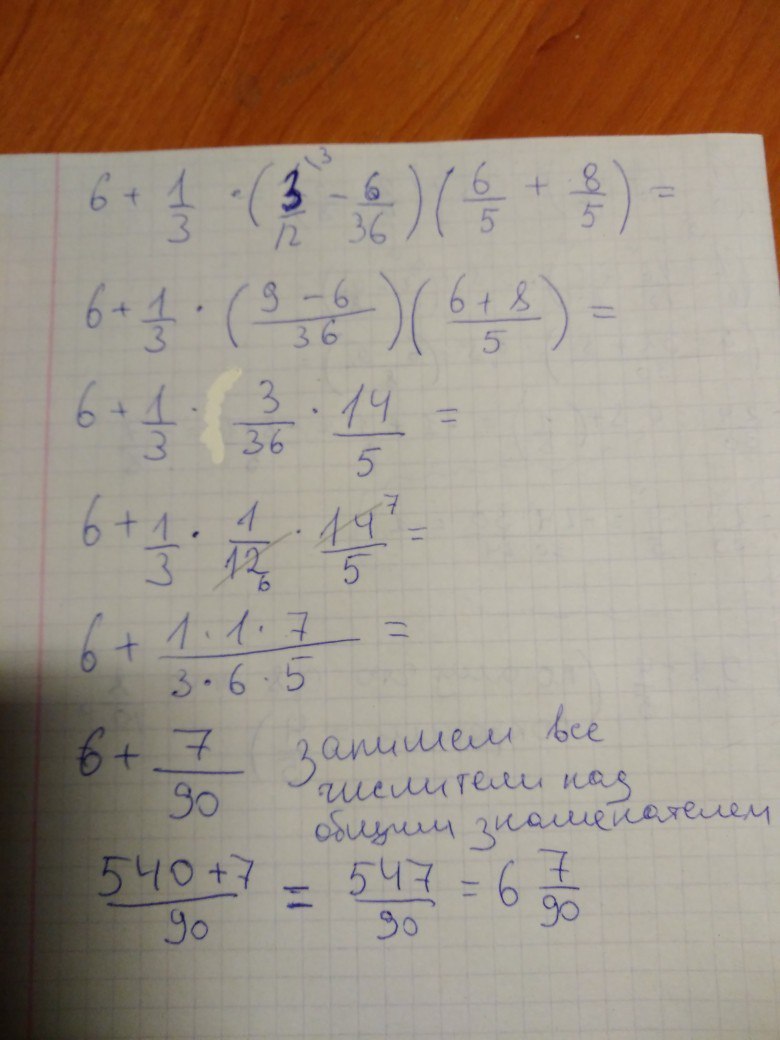 6 + 1/3 · (3/12 \3 - 6/36)(6/5 + 8/5) =
6 + 1/3 · ((9 - 6)/36)((6 + 8)/5) =
6 + 1/3 · 3/36 · 14/5 =
6 + 1/3 · 1/12 6 · 14/5 7 =
6 + (1 · 1 · 7)/(3 · 6 · 5) =
6 + 7/90 запишем все
числители над
общим знаменателем
(540 + 7)/90 = 547/90 = 6 7/90